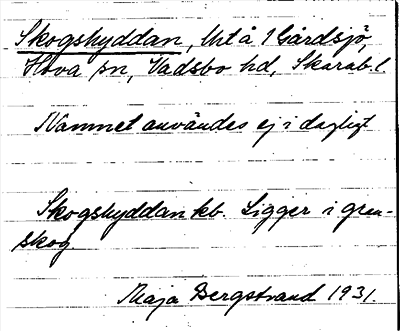 Skogshyddan, Url å 1 Gårdsjö,
Hova sn, Vadsbo hd, Skarab. l.
Namnet användes ej i dagligt
Skogshyddan kb. Ligger i gran-
skog
Maja Bergstrand 1931.